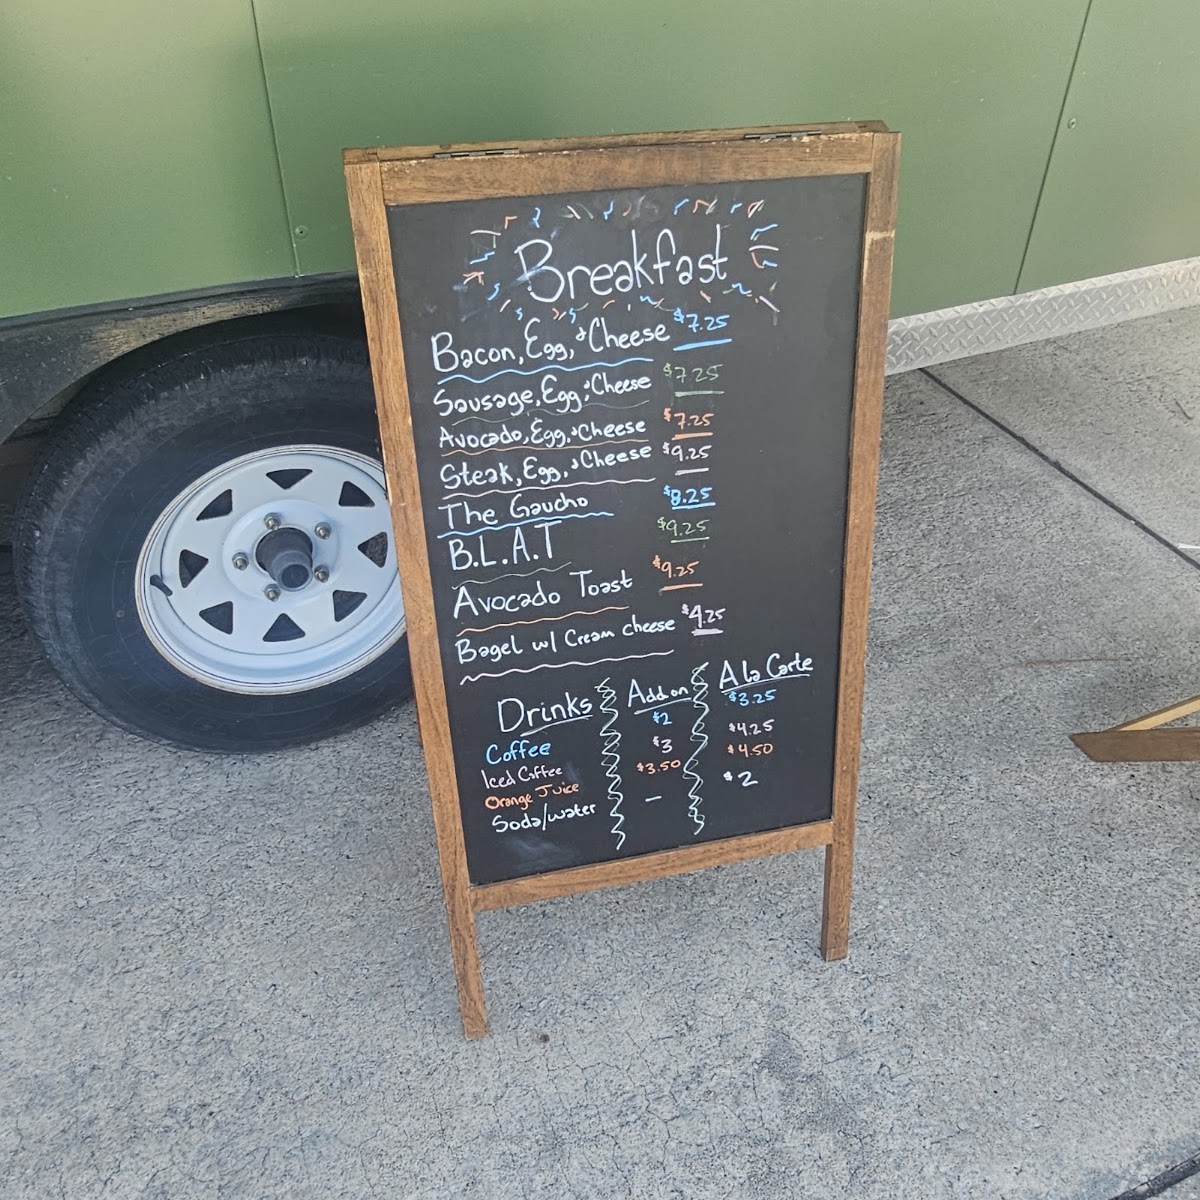 Breakfast
Bacon, Egg, & Cheese $7.25
Sausage, Egg, & Cheese $7.25
Avocado, Egg, & Cheese $7.25
Steak, Egg, & Cheese $9.25
The Gaucho $8.25
B.L.A.T $9.25
Avocado Toast $9.25
Bagel w/ Cream cheese $4.25
Drinks Add on A la Carte
Coffee $2 $3.25
Iced Coffee $3 $4.25
Orange Juice $3.50 $4.50
Soda/water — $2